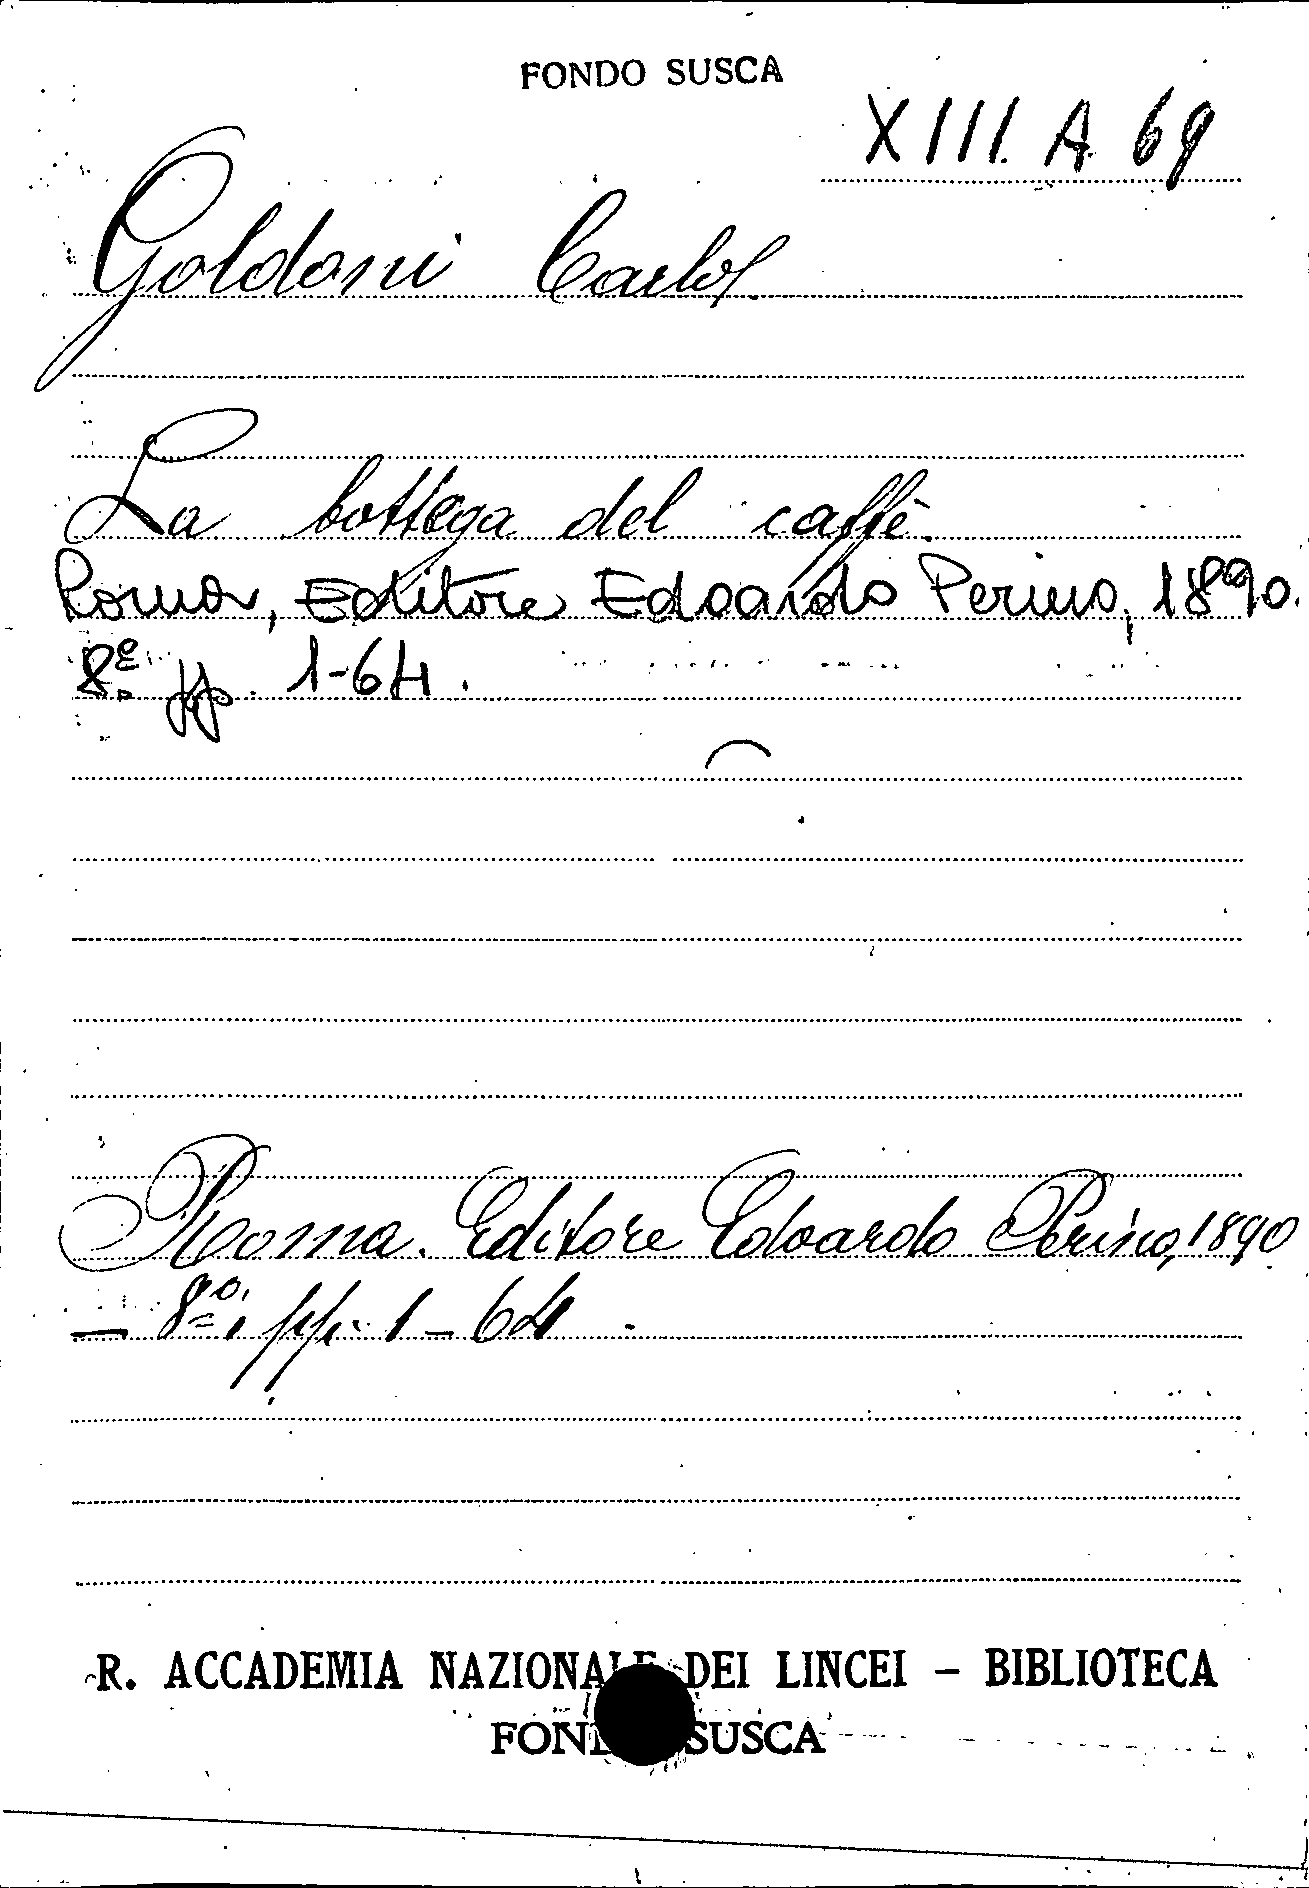 FONDO SUSCA
XIII. A. 69
Goldoni Carlo
La bottega del caffè.
Roma, Editore Edoardo Perino, 1890.
8º. pp. 1-64.
Roma. Editore Edoardo Perino, 1890
— 8º, pp. 1-64.
R. ACCADEMIA NAZIONALE DEI LINCEI - BIBLIOTECA
FONDO SUSCA